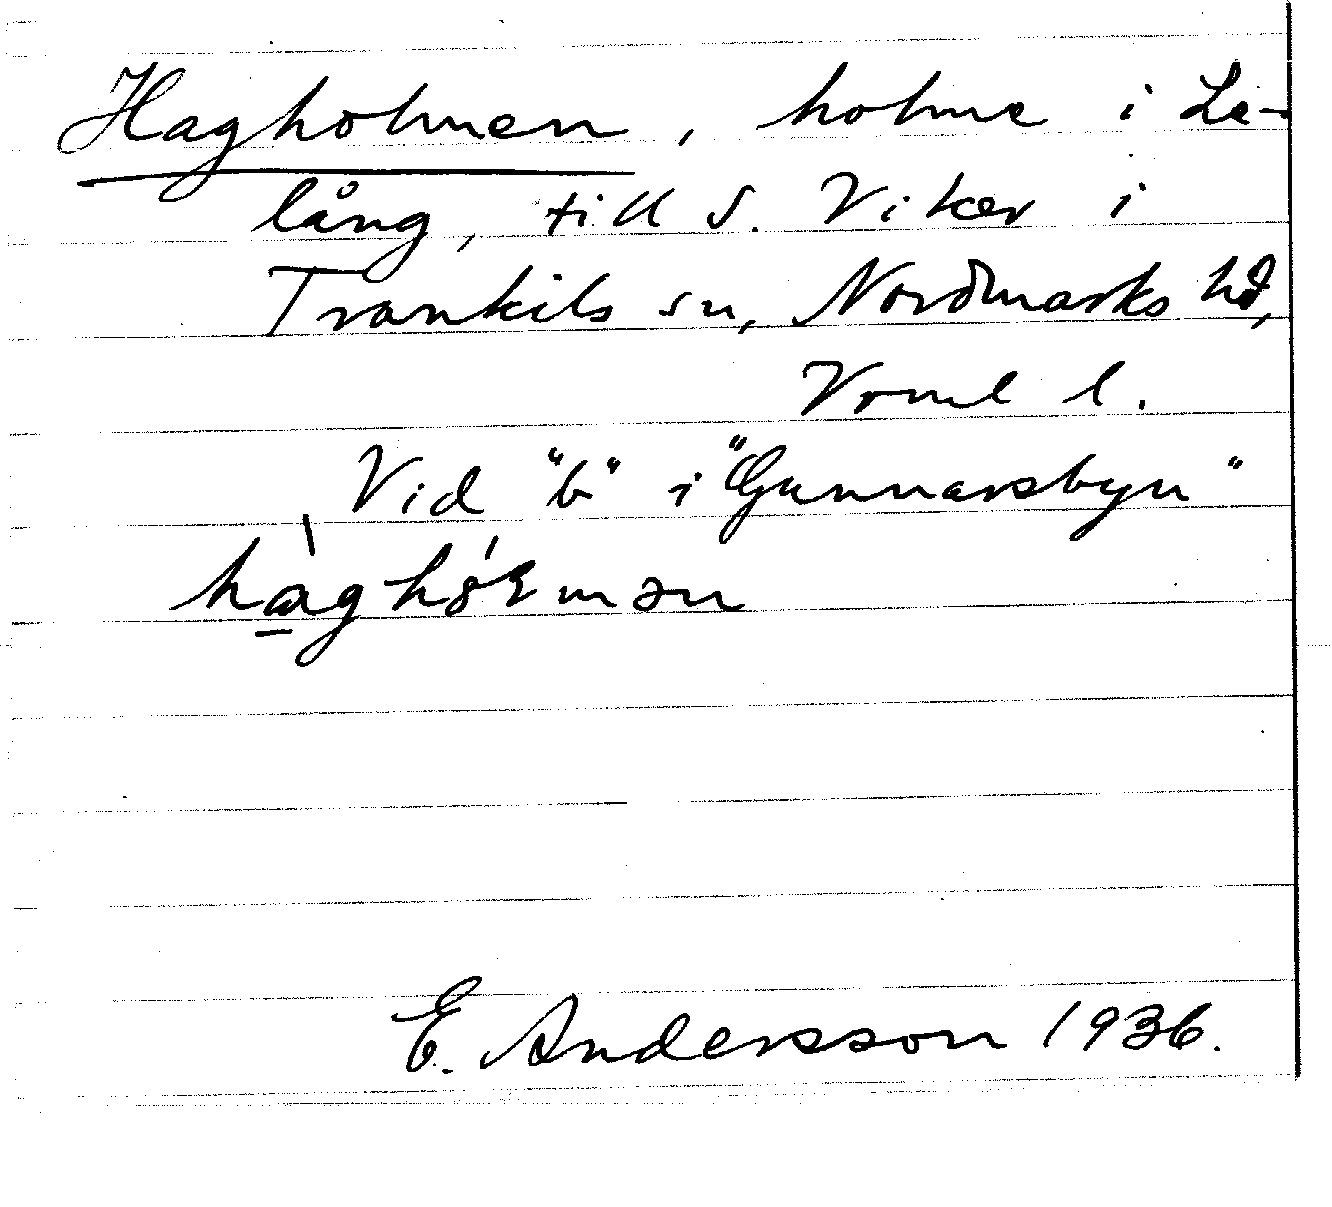 Hagholmen, holme i Le-
lång, till S. Viker i
Trankils sn, Nordmarks hd,
Vrml l.
Vid "b" i "Gunnarsbyn"
E. Andersson 1936.